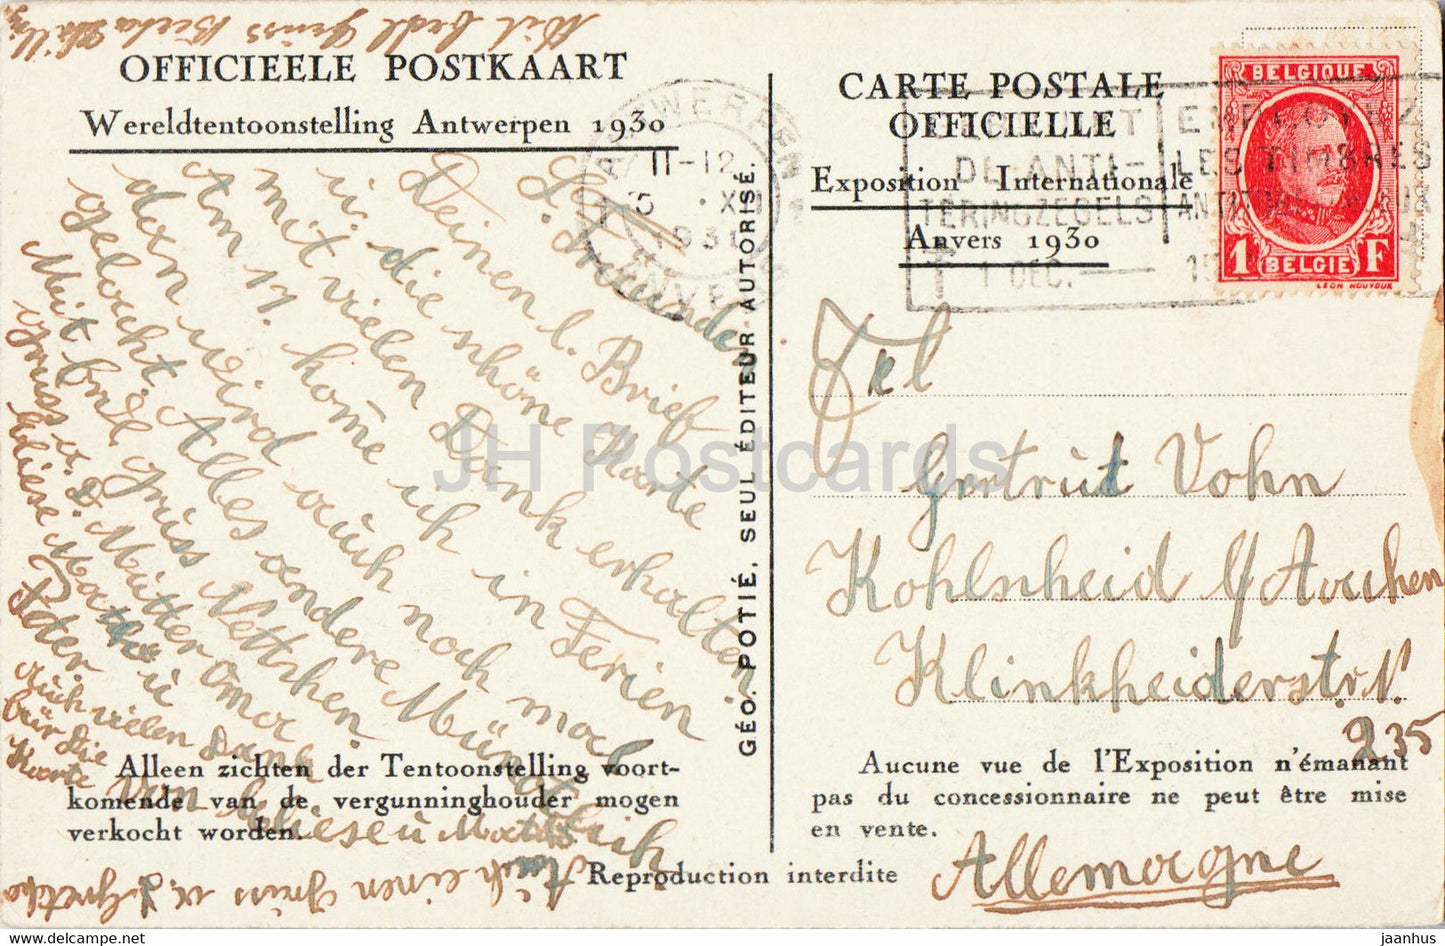 OFFICIEELE POSTKAART
Wereldtentoonstelling Antwerpen 1930
CARTE POSTALE
OFFICIELLE
Exposition Internationale
Anvers 1930
ANTWERPEN
11-12
1931
ANVERS
DE ANTI-
TERINGZEGELS
1 DEC.
EMPLOYEZ
LES TIMBRES
BELGIQUE
1 BELGIE F
LEON HOUYOUX
L. Freundin
Deinen l. Brief
u. die schöne Karte
mit vielen Dank erhalten
Am 17. kome ich in Ferien
den wird auch noch mal
gekocht. Alles andere Mündlich
Mit frdl Gruss Nettchen.
Gruss u. d. Mutter Oma
Peter.
auch vielen Dank
für die
Karte
Auch einen Gruss
GÉO. POTIÉ, SEUL ÉDITEUR AUTORISÉ.
Frl
Gertrud Vohn
Kohlscheid b/Aachen
Klinkheiderstr.
235
Allemagne
Alleen zichten der Tentoonstelling voort-
komende van de vergunninghouder mogen
verkocht worden.
Aucune vue de l'Exposition n'émanant
pas du concessionnaire ne peut être mise
en vente.
Reproduction interdite
JH Postcards
www.delcampe.net
jaanhus